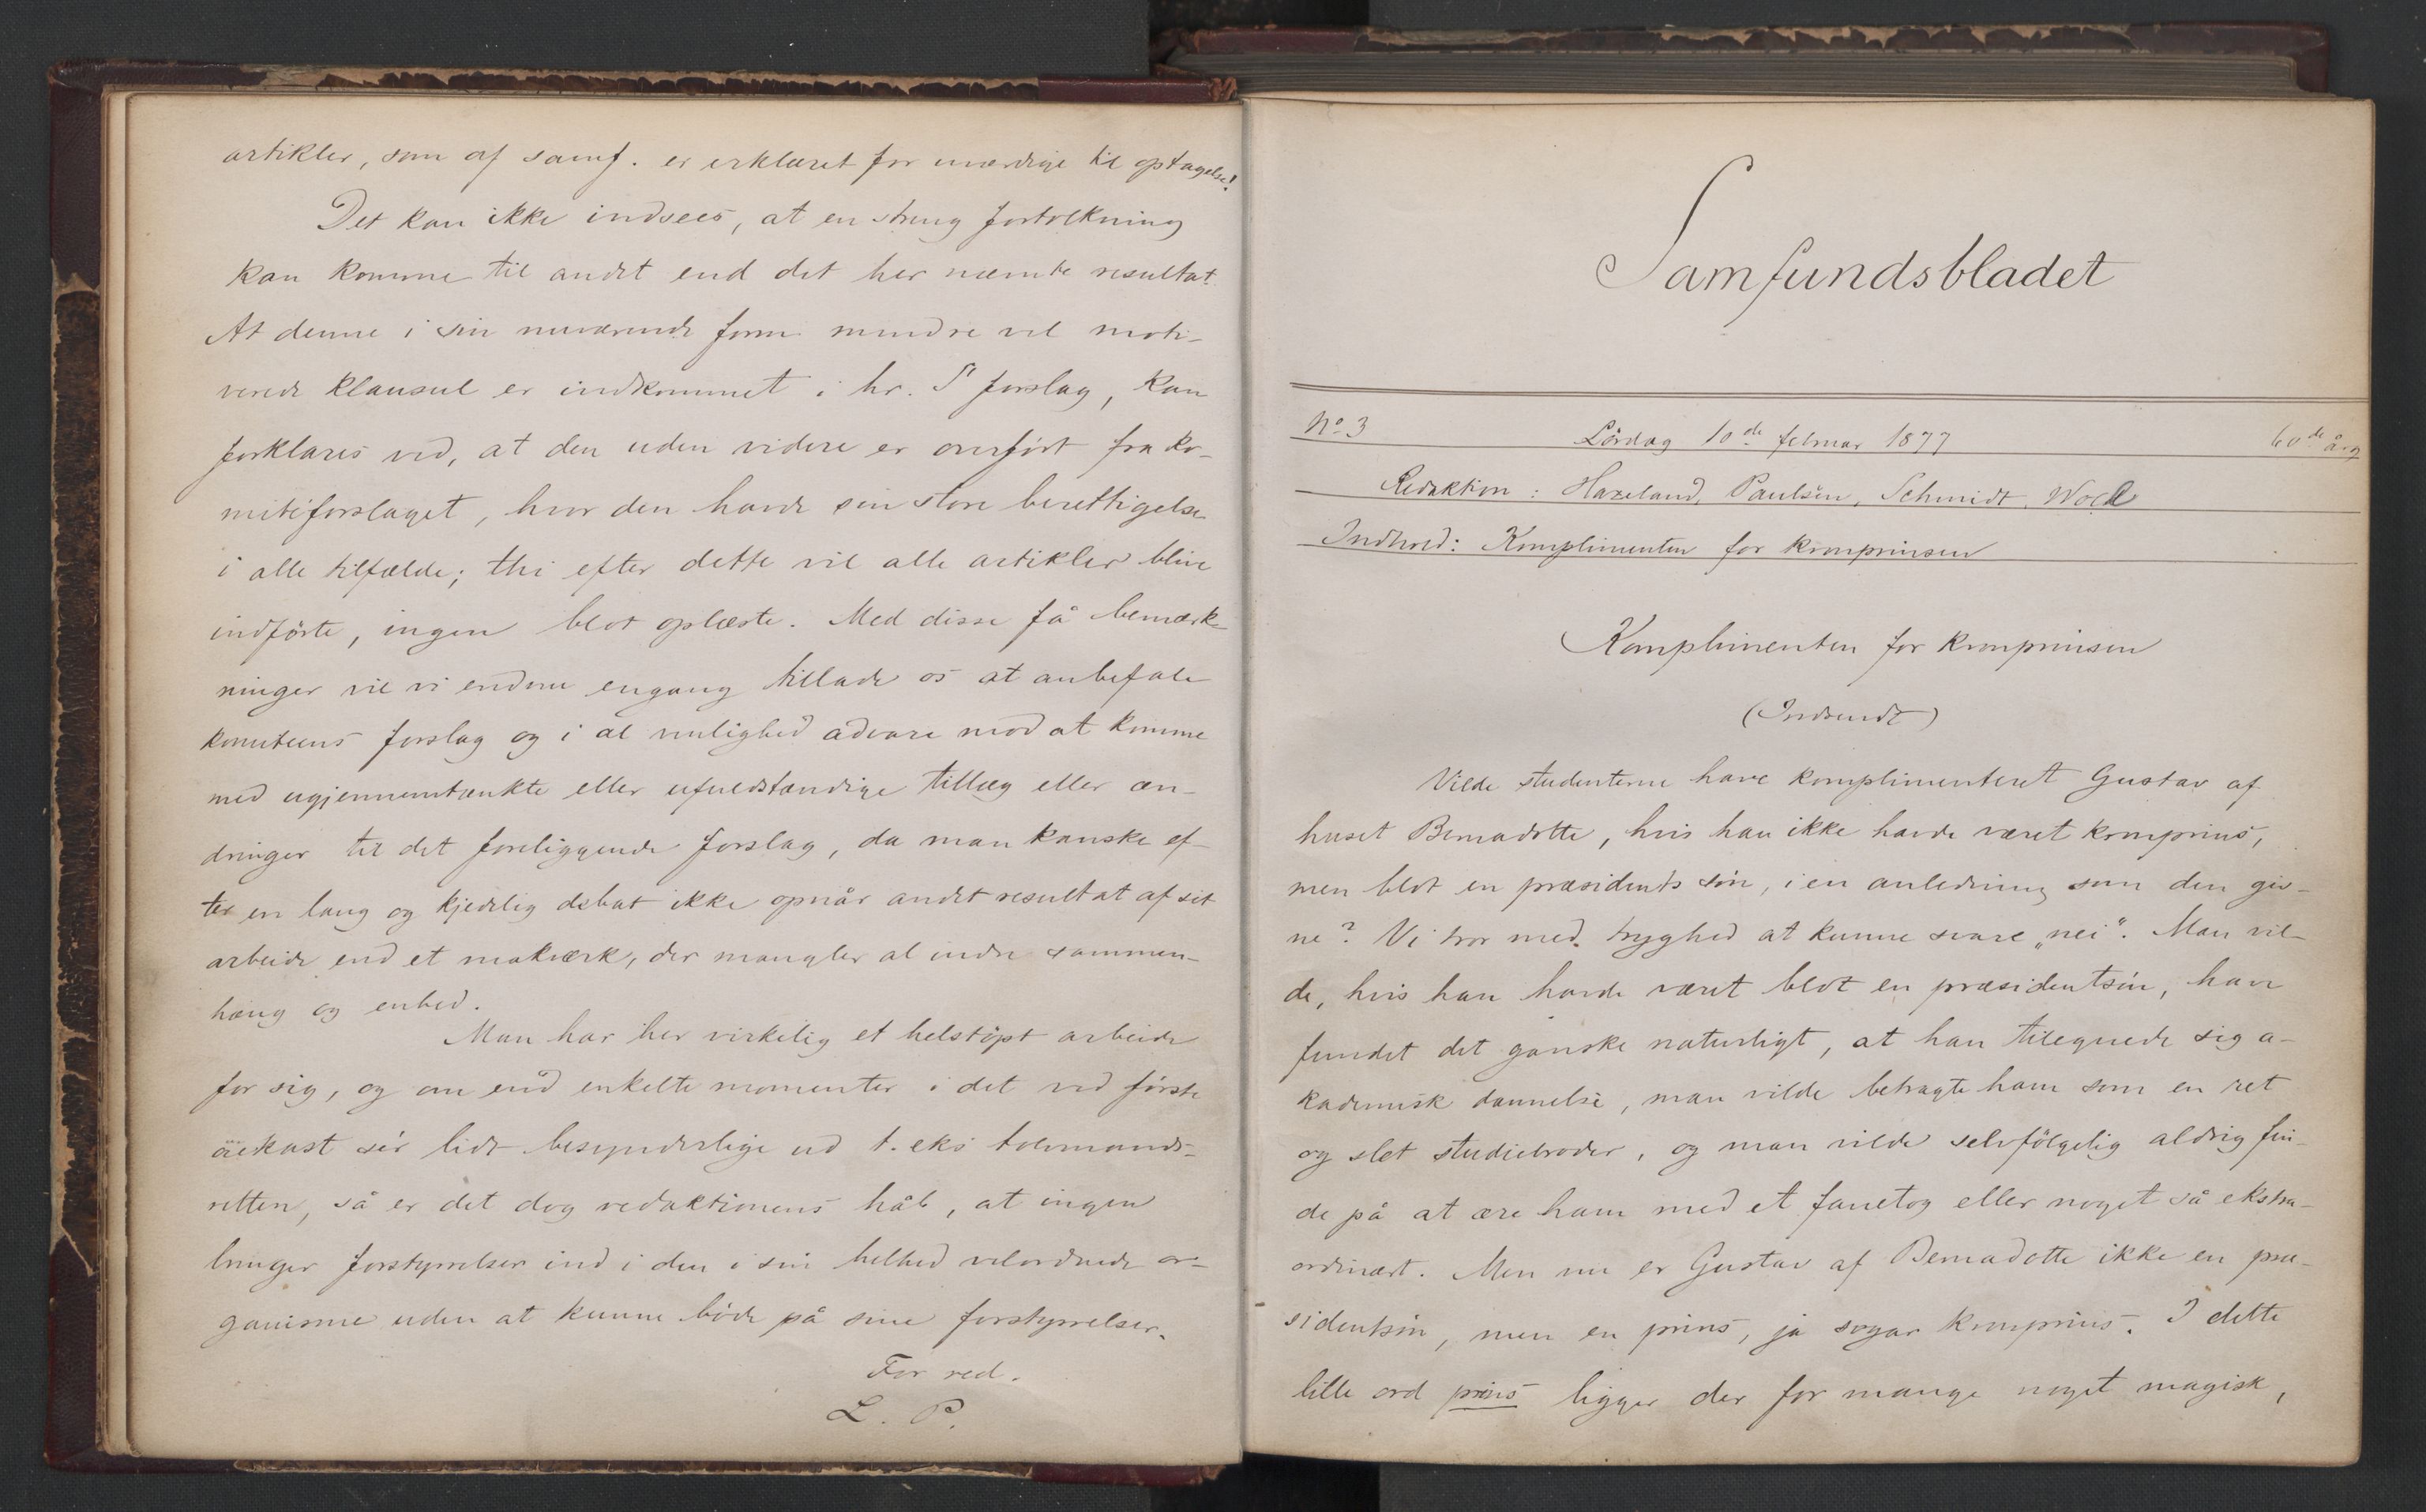 artikler, som af samf. er erklæret for uværdige til optagelse!
Det kan ikke indsees, at en streng fortolkning
kan komme til andet end det her nævnte resultat.
At denne i sin nuværende form mindre vel moti-
verede klausul er indkommet i hr. S' forslag, kan
forklares ved, at den uden videre er overført fra ko-
miteforslaget, hvor den havde sin store berettigelse
i alle tilfælde; thi efter dette vil alle artikler blive
indførte, ingen blot oplæste. Med disse få bemærk-
ninger vil vi endnu engang tillade os at anbefale
komiteens forslag og i al venlighed advare mod at komme
med ugjennemtænkte eller ufuldstændige tillæg eller æn-
dringer til det foreliggende forslag, da man kanske ef-
ter en lang og kjedelig debat ikke opnår andet resultat af sit
arbeide end et makværk, der mangler al indre sammen-
hæng og enhed.
Man har her virkelig et helstøpt arbeide
for sig, og om end enkelte momenter i det ved første
øiekast sér lidt besynderlige ud t. eks tolvmands-
retten, så er det dog redaktionens håb, at ingen
bringer forstyrrelser ind i den i sin helhed velordnede or-
ganisme uden at kunne bøde på sine forstyrrelser.
For red.
L. P.
Samfundsbladet
No 3 Lördag 10de februar 1877 60de årg
Redaktion: Hazeland, Paulsen, Schmidt, Woll
Indhold: Komplimenten for kronprinsen
Komplimenten for kronprinsen
(Indsendt)
Vilde studenterne have komplimenteret Gustav af
huset Bernadotte, hvis han ikke havde været kronprins,
men blot en præsidents søn, i en anledning som den giv-
ne? Vi tror med tryghed at kunne svare „nei“. Man vil-
de, hvis han havde været blot en præsidentsøn, have
fundet det ganske naturligt, at han tilegnede sig a-
kademisk dannelse, man vilde betragte ham som en ret
og slet studiebroder, og man vilde selvfölgelig aldrig fin-
de på at ære ham med et fanetog eller noget så ekstra-
ordinært. Men nu er Gustav af Bernadotte ikke en præ-
sidentsøn, men en prins, ja sogar kronprins. I dette
lille ord prins ligger der for mange noget magisk,